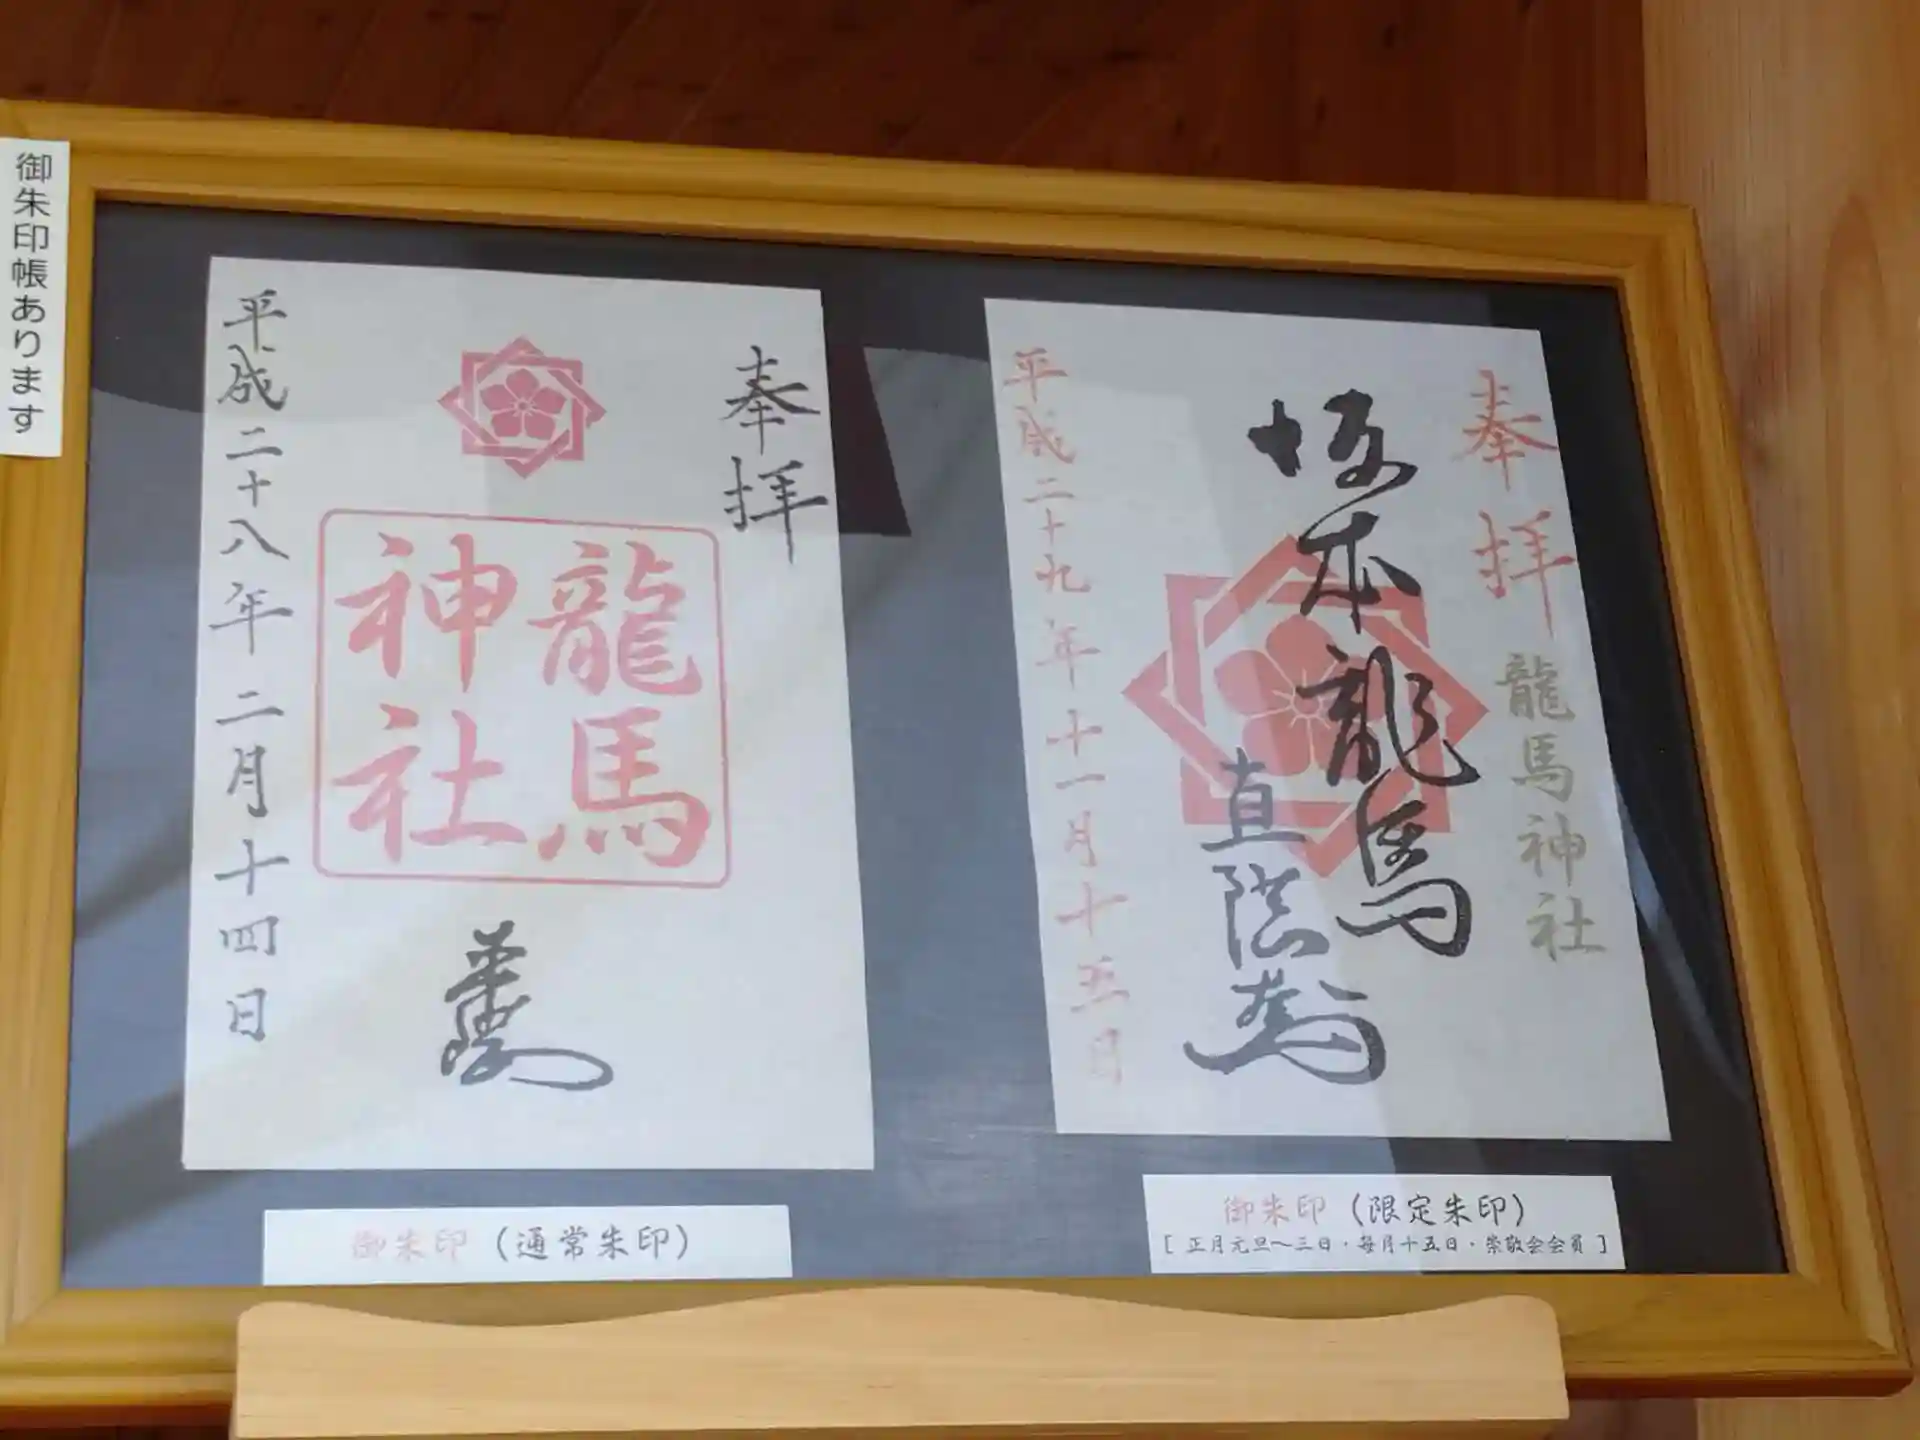 御朱印帳あります
奉拝
龍馬
神社
平成二十八年二月十四日
御朱印（通常朱印）
奉拝
龍馬神社
坂本龍馬
直陰
平成二十九年十一月十五日
御朱印（限定朱印）
［ 正月元旦～三日・毎月十五日・崇敬会会員 ］